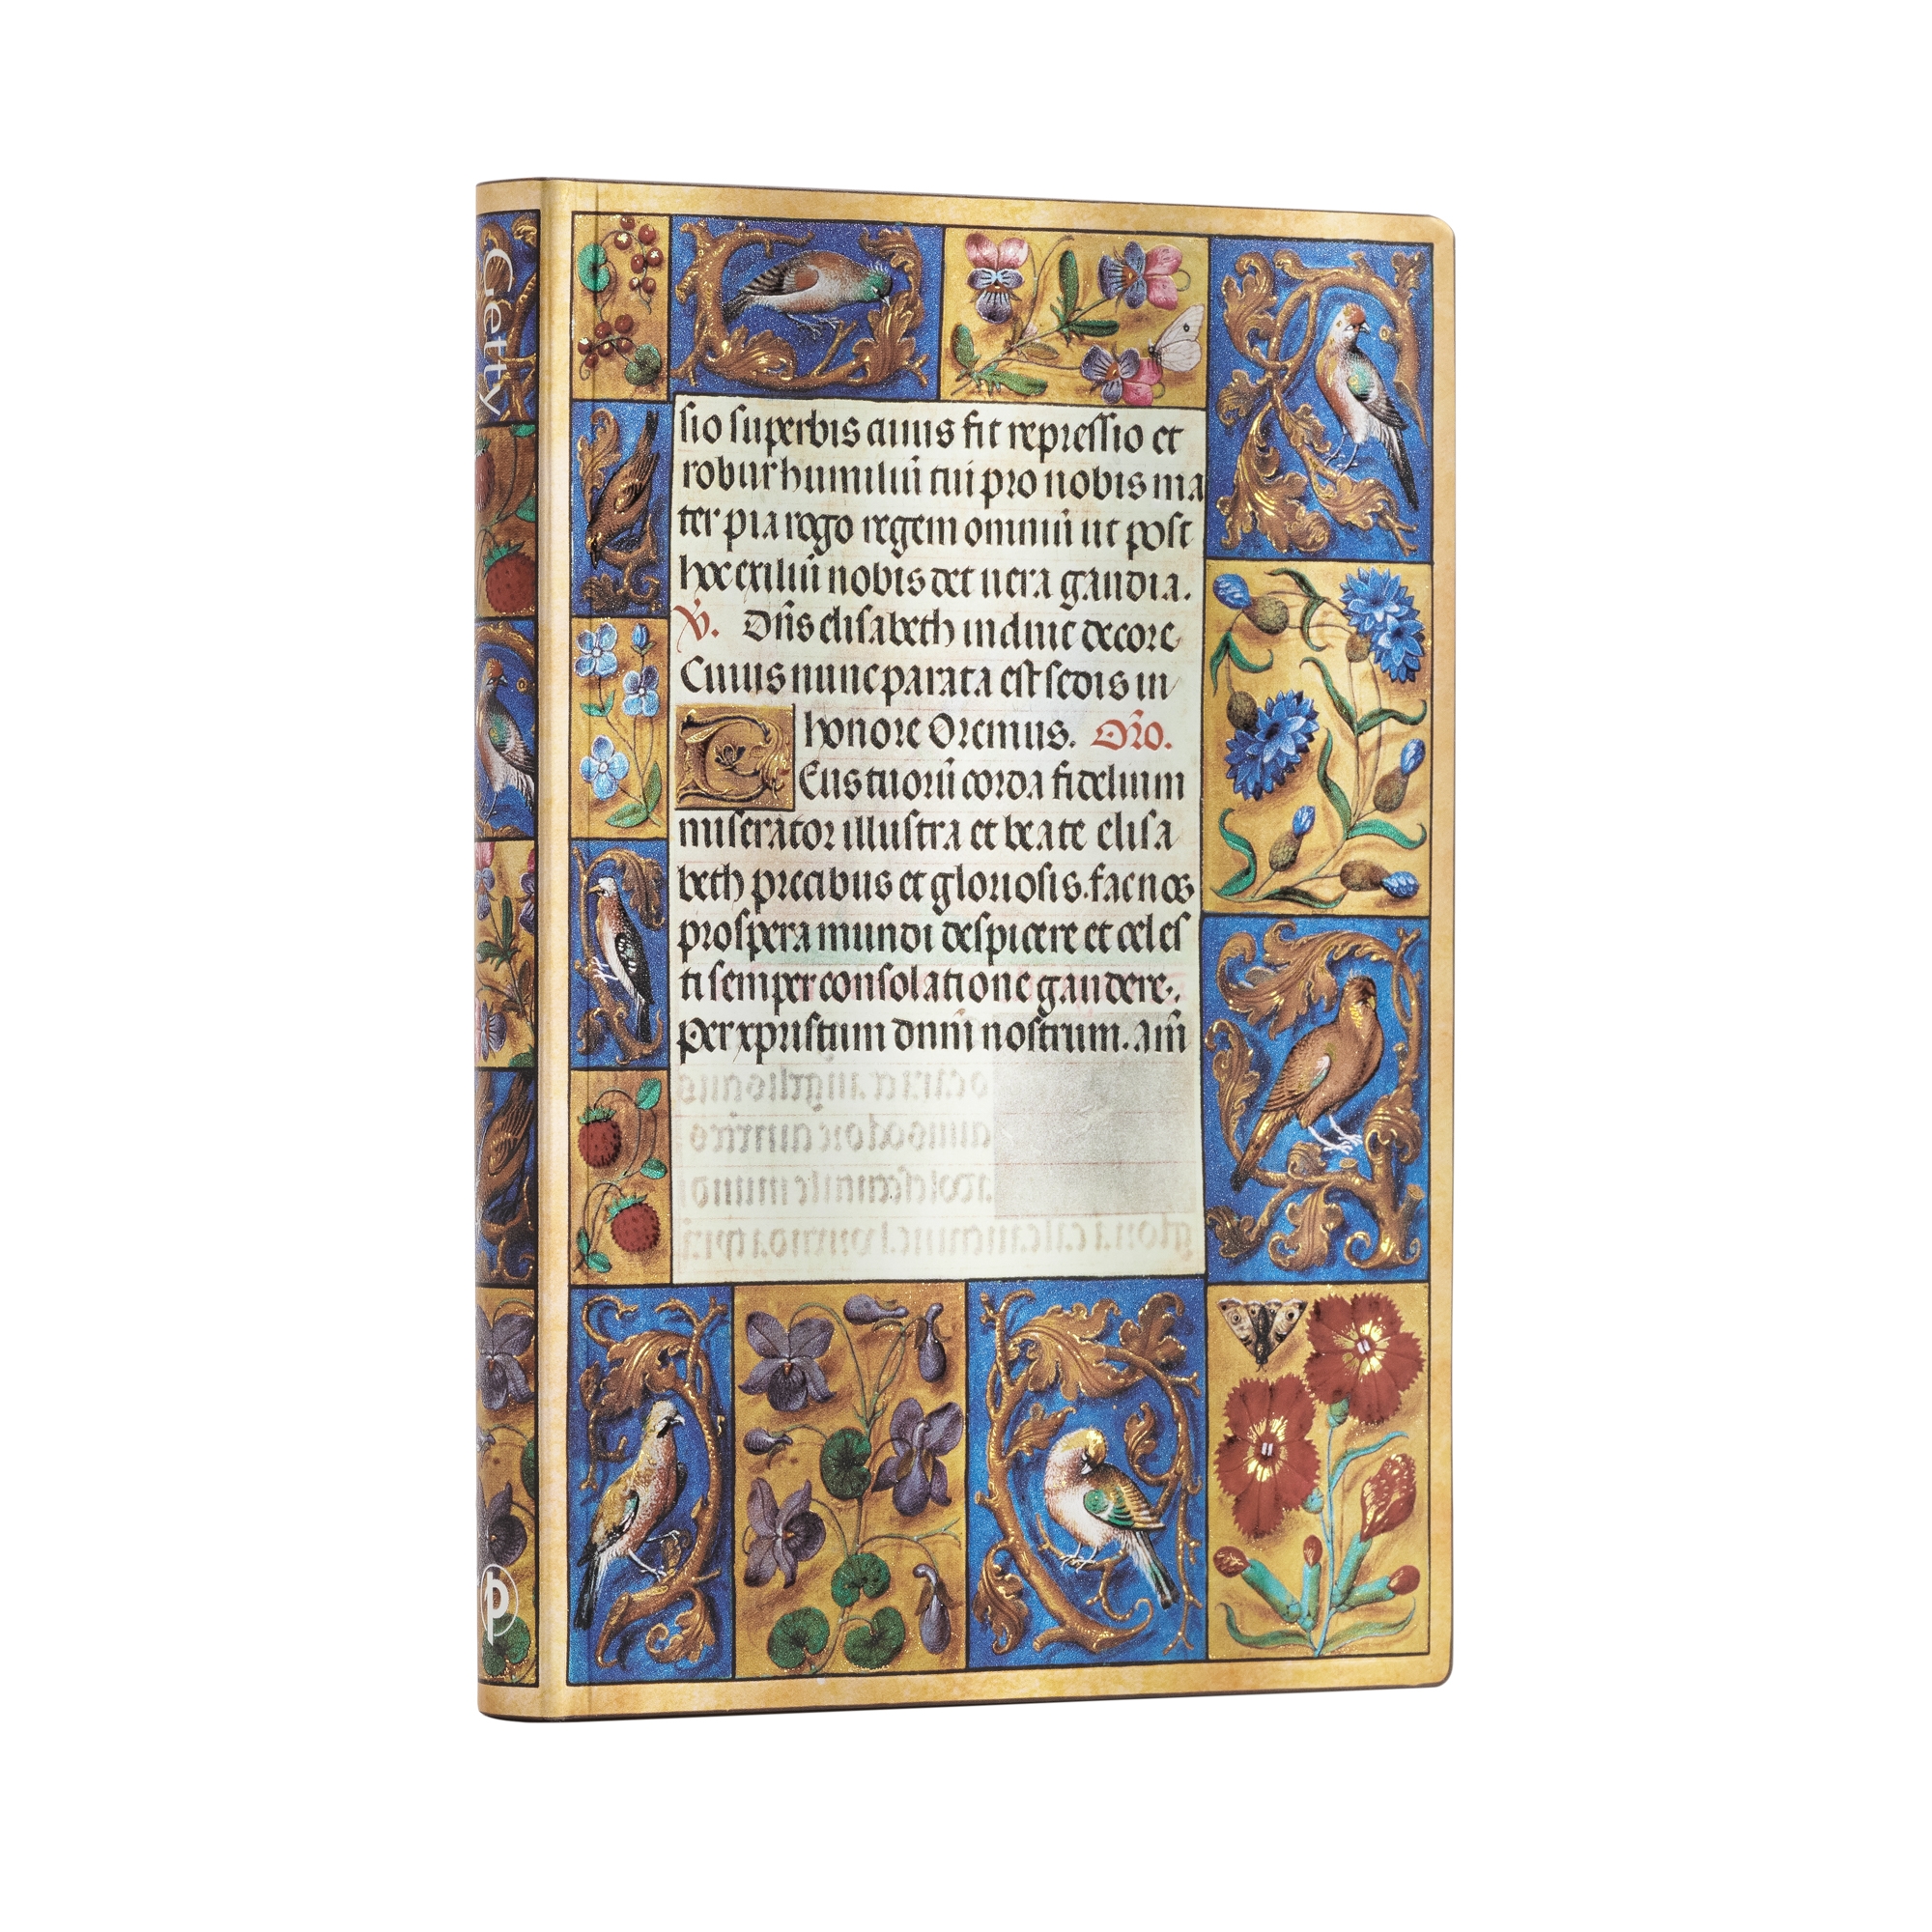 Getty
sio superbis cuius fit repressio et
robur humiliū tui pro nobis ma
ter pia rogo regem omniū ut post
hoc exiliū nobis det uera gaudia.
V. Dn̄s elisabeth induit decore
Cuius nunc parata est sedis in
honore Oremus. Or̄o.
DEus tuorū corda fidelium
miserator illustra et beate elisa
beth precibus et gloriosis. fac nos
prospera mundi despicere et celes
ti semper consolatione gaudere.
Per xp̄ristum dnm̄ nostrum. am̄
p